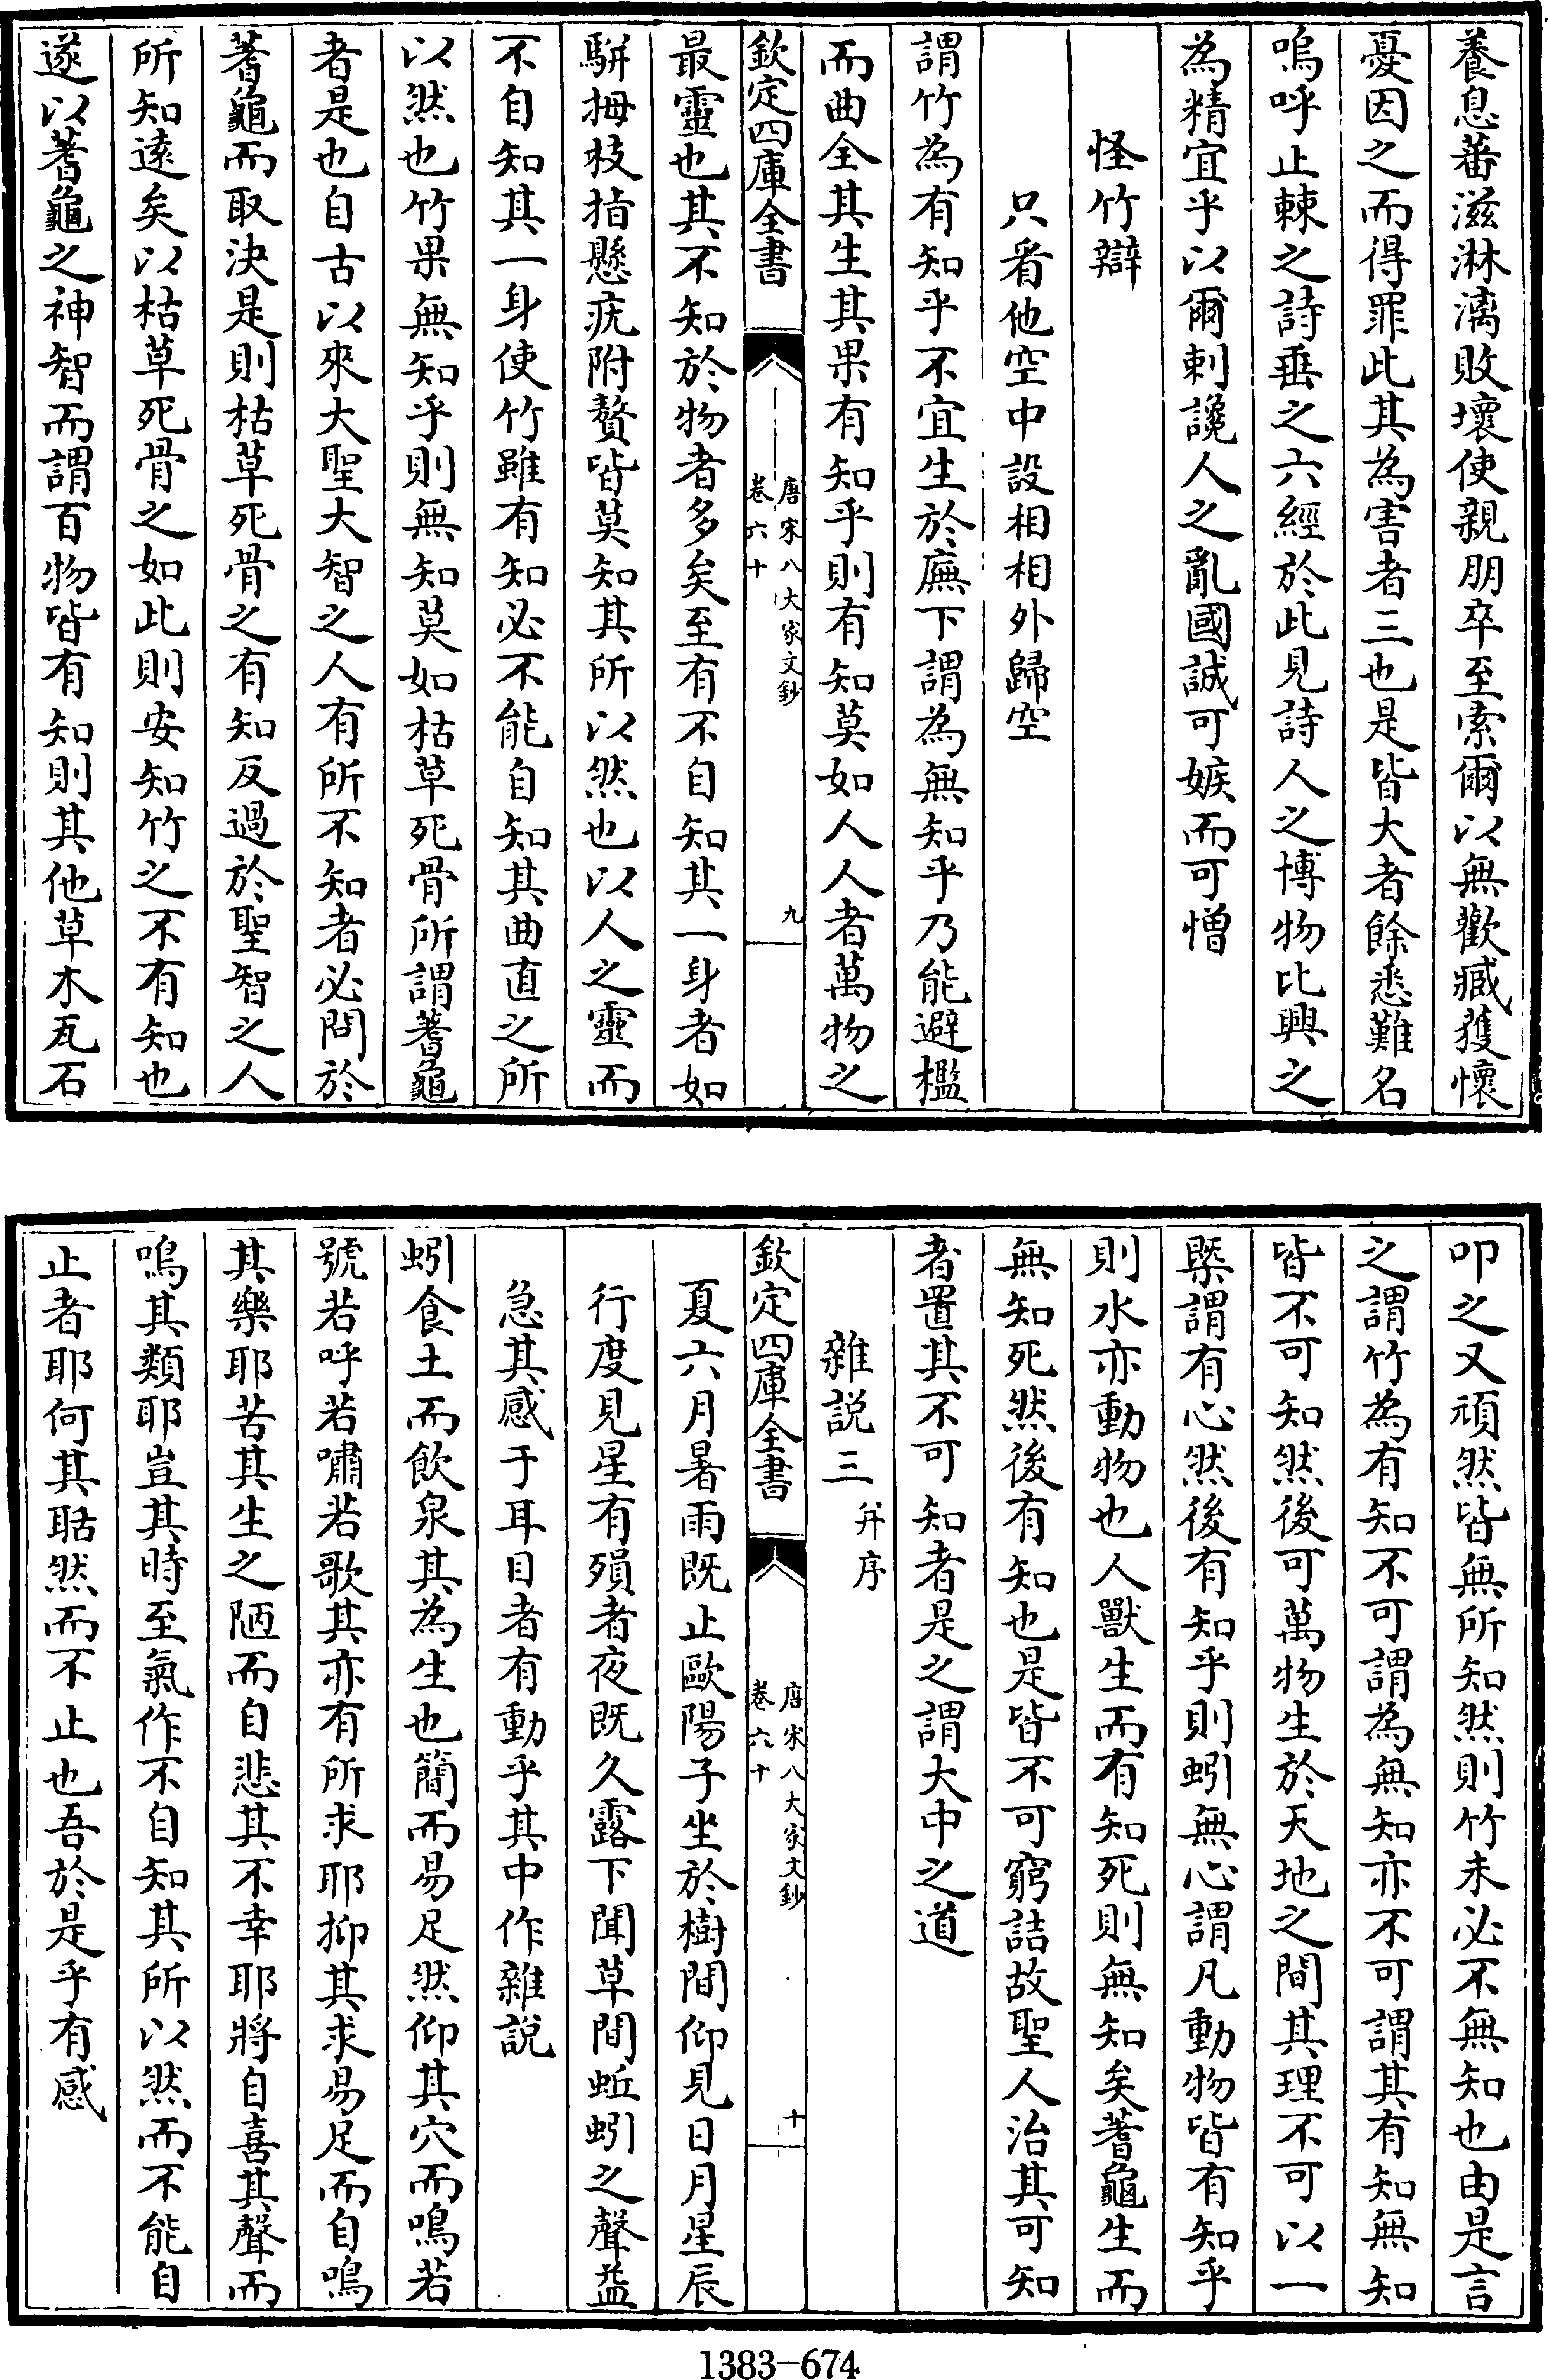 養息蕃滋淋漓敗壞使親朋卒至索爾以無歡臧獲懷
憂因之而得罪此其為害者三也是皆大者餘悉難名
嗚呼止棘之詩垂之六經於此見詩人之博物比興之
為精宜乎以爾刺讒人之亂國誠可嫉而可憎
怪竹辯
只看他空中設相相外歸空
謂竹為有知乎不宜生於廡下謂為無知乎乃能避檻
而曲全其生其果有知乎則有知莫如人人者萬物之
欽定四庫全書
唐宋八大家文鈔
卷六十
九
最靈也其不知於物者多矣至有不自知其一身者如
駢拇枝指懸疣附贅皆莫知其所以然也以人之靈而
不自知其一身使竹雖有知必不能自知其曲直之所
以然也竹果無知乎則無知莫如枯草死骨所謂蓍龜
者是也自古以來大聖大智之人有所不知者必問於
蓍龜而取決是則枯草死骨之有知反過於聖智之人
所知遠矣以枯草死骨之如此則安知竹之不有知也
遂以蓍龜之神智而謂百物皆有知則其他草木瓦石
叩之又頑然皆無所知然則竹未必不無知也由是言
之謂竹為有知不可謂為無知亦不可謂其有知無知
皆不可知然後可萬物生於天地之間其理不可以一
槩謂有心然後有知乎則蚓無心謂凡動物皆有知乎
則水亦動物也人獸生而有知死則無知矣蓍龜生而
無知死然後有知也是皆不可窮詰故聖人治其可知
者置其不可知者是之謂大中之道
雜説三 并序
欽定四庫全書
唐宋八大家文鈔
卷六十
十
夏六月暑雨既止歐陽子坐於樹間仰見日月星辰
行度見星有殞者夜既久露下聞草間蚯蚓之聲益
急其感于耳目者有動乎其中作雜說
蚓食土而飲泉其為生也簡而易足然仰其穴而鳴若
號若呼若嘯若歌其亦有所求耶抑其求易足而自鳴
其樂耶苦其生之陋而自悲其不幸耶將自喜其聲而
鳴其類耶豈其時至氣作不自知其所以然而不能自
止者耶何其聒然而不止也吾於是乎有感
1383-674